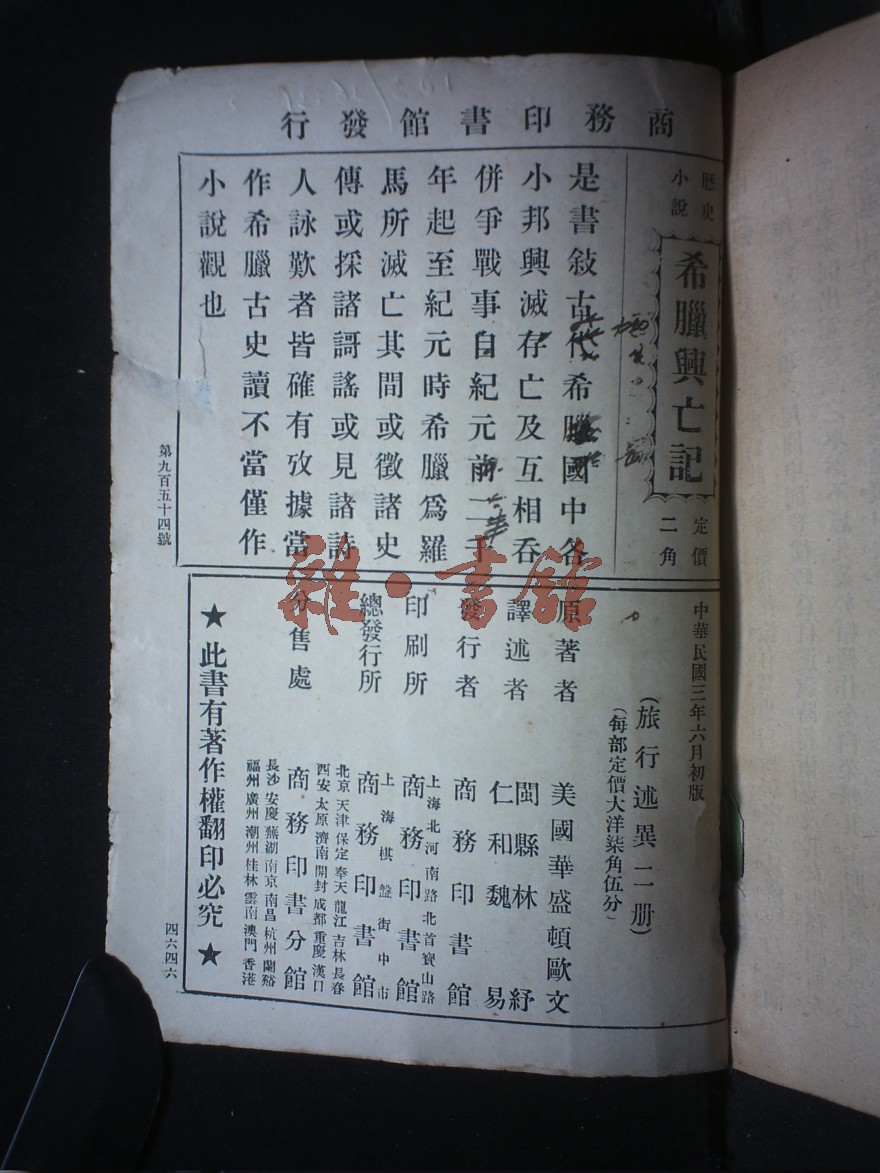 商務印書館發行
歷史
小說
希臘興亡記
定價
二角
是書敍古代希臘國中各
小邦興滅存亡及互相吞
併爭戰事自紀元前二千
年起至紀元時希臘爲羅
馬所滅亡其間或徵諸史
傳或採諸謌謠或見諸詩
人詠歎者皆確有攷據當
作希臘古史讀不當僅作
小說觀也
第九百五十四號
中華民國三年六月初版
(旅行述異二册)
(每部定價大洋柒角伍分)
原著者 美國華盛頓歐文
譯述者 閩縣林紓
仁和魏易
發行者 商務印書館
印刷所 上海北河南路北首寶山路
商務印書館
總發行所 上海棋盤街中市
商務印書館
分售處 北京 天津 保定 奉天 龍江 吉林 長春
西安 太原 濟南 開封 成都 重慶 漢口
商務印書分館
長沙 安慶 蕪湖 南京 南昌 杭州 蘭谿
福州 廣州 潮州 桂林 雲南 澳門 香港
★此書有著作權翻印必究★
四六四六
雜·書館